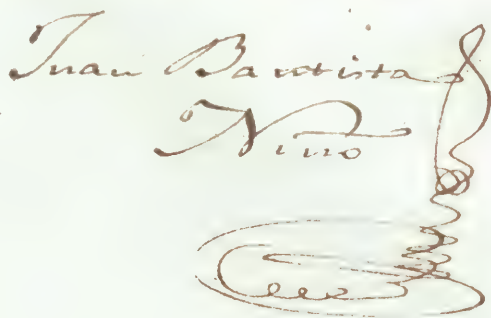 Juan Bautista
Nino